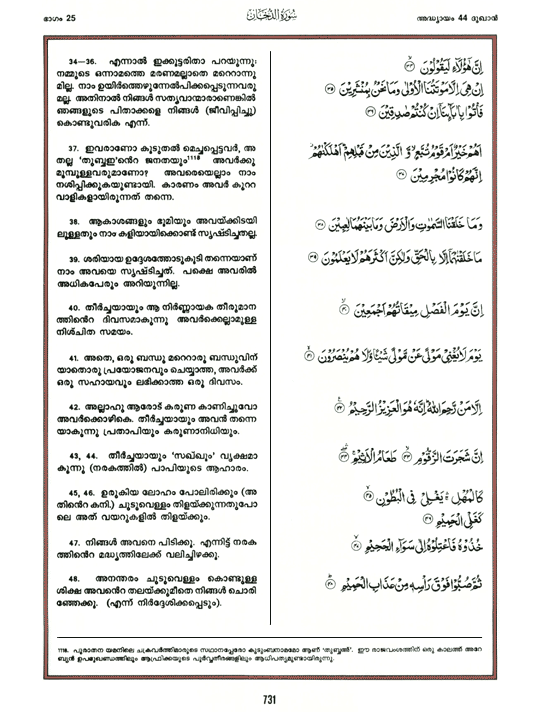 ഭാഗം 25
سُورَةُ الدُّخَان
അദ്ധ്യായം 44 ദുഖാൻ
34—36. എന്നാൽ ഇക്കൂട്ടരിതാ പറയുന്നു:
നമ്മുടെ ഒന്നാമത്തെ മരണമല്ലാതെ മറെറാന്നു
മില്ല. നാം ഉയിർത്തെഴുന്നേൽപിക്കപ്പെടുന്നവരു
മല്ല. അതിനാൽ നിങ്ങൾ സത്യവാന്മാരാണെങ്കിൽ
ഞങ്ങളുടെ പിതാക്കളെ നിങ്ങൾ (ജീവിപ്പിച്ചു)
കൊണ്ടുവരിക എന്ന്.
37. ഇവരാണോ കൂടുതൽ മെച്ചപ്പെട്ടവർ, അ
തല്ല 'തുബ്ബഇ'ൻെറ ജനതയും1118 അവർക്കു
മുമ്പുള്ളവരുമാണോ? അവരെയെല്ലാം നാം
നശിപ്പിക്കുകയുണ്ടായി. കാരണം അവർ കുററ
വാളികളായിരുന്നത് തന്നെ.
38. ആകാശങ്ങളും ഭൂമിയും അവയ്ക്കിടയി
ലുള്ളതും നാം കളിയായിക്കൊണ്ട് സൃഷ്ടിച്ചതല്ല.
39. ശരിയായ ഉദ്ദേശത്തോടുകൂടി തന്നെയാണ്
നാം അവയെ സൃഷ്ടിച്ചത്. പക്ഷെ അവരിൽ
അധികപേരും അറിയുന്നില്ല.
40. തീർച്ചയായും ആ നിർണ്ണായക തീരുമാന
ത്തിൻെറ ദിവസമാകുന്നു അവർക്കെല്ലാമുള്ള
നിശ്ചിത സമയം.
41. അതെ, ഒരു ബന്ധു മറെറാരു ബന്ധുവിന്
യാതൊരു പ്രയോജനവും ചെയ്യാത്ത, അവർക്ക്
ഒരു സഹായവും ലഭിക്കാത്ത ഒരു ദിവസം.
42. അല്ലാഹു ആരോട് കരുണ കാണിച്ചുവോ
അവർക്കൊഴികെ. തീർച്ചയായും അവൻ തന്നെ
യാകുന്നു പ്രതാപിയും കരുണാനിധിയും.
43, 44. തീർച്ചയായും 'സഖ്ഖൂം' വൃക്ഷമാ
കുന്നു (നരകത്തിൽ) പാപിയുടെ ആഹാരം.
45, 46. ഉരുകിയ ലോഹം പോലിരിക്കും (അ
തിൻെറ കനി.) ചുടുവെള്ളം തിളയ്ക്കുന്നതുപോ
ലെ അത് വയറുകളിൽ തിളയ്ക്കും.
47. നിങ്ങൾ അവനെ പിടിക്കൂ. എന്നിട്ട് നരക
ത്തിൻെറ മദ്ധ്യത്തിലേക്ക് വലിച്ചിഴക്കൂ.
48. അനന്തരം ചുടുവെള്ളം കൊണ്ടുള്ള
ശിക്ഷ അവൻെറ തലയ്ക്കുമീതെ നിങ്ങൾ ചൊരി
ഞ്ഞേക്കൂ. (എന്ന് നിർദ്ദേശിക്കപ്പെടും).
إِنَّ هَٰؤُلَاءِ لَيَقُولُونَ ۝٣٤
إِنْ هِىَ إِلَّا مَوْتَتُنَا الْأُولَىٰ وَمَا نَحْنُ بِمُنشَرِينَ ۝٣٥
فَأْتُوا بِآبَائِنَا إِن كُنتُمْ صَادِقِينَ ۝٣٦
أَهُمْ خَيْرٌ أَمْ قَوْمُ تُبَّعٍ وَالَّذِينَ مِن قَبْلِهِمْ أَهْلَكْنَاهُمْ
إِنَّهُمْ كَانُوا مُجْرِمِينَ ۝٣٧
وَمَا خَلَقْنَا السَّمَوَاتِ وَالْأَرْضَ وَمَا بَيْنَهُمَا لَاعِبِينَ ۝٣٨
مَا خَلَقْنَاهُمَا إِلَّا بِالْحَقِّ وَلَٰكِنَّ أَكْثَرَهُمْ لَا يَعْلَمُونَ ۝٣٩
إِنَّ يَوْمَ الْفَصْلِ مِيقَاتُهُمْ أَجْمَعِينَ ۝٤٠
يَوْمَ لَا يُغْنِى مَوْلًى عَن مَّوْلًى شَيْئًا وَلَا هُمْ يُنصَرُونَ ۝٤١
إِلَّا مَن رَّحِمَ اللَّهُ إِنَّهُ هُوَ الْعَزِيزُ الرَّحِيمُ ۝٤٢
إِنَّ شَجَرَتَ الزَّقُّومِ ۝٤٣ طَعَامُ الْأَثِيمِ ۝٤٤
كَالْمُهْلِ يَغْلِى فِى الْبُطُونِ ۝٤٥
كَغَلْىِ الْحَمِيمِ ۝٤٦
خُذُوهُ فَاعْتِلُوهُ إِلَىٰ سَوَاءِ الْجَحِيمِ ۝٤٧
ثُمَّ صُبُّوا فَوْقَ رَأْسِهِ مِنْ عَذَابِ الْحَمِيمِ ۝٤٨
1118. പുരാതന യമനിലെ ചക്രവർത്തിമാരുടെ സ്ഥാനപ്പേരോ കുടുംബനാമമോ ആണ് 'തുബ്ബഅ്'. ഈ രാജവംശത്തിന് ഒരു കാലത്ത് അറേ
ബ്യൻ ഉപഭൂഖണ്ഡത്തിലും ആഫ്രിക്കയുടെ പൂർവ്വതീരങ്ങളിലും ആധിപത്യമുണ്ടായിരുന്നു.
731